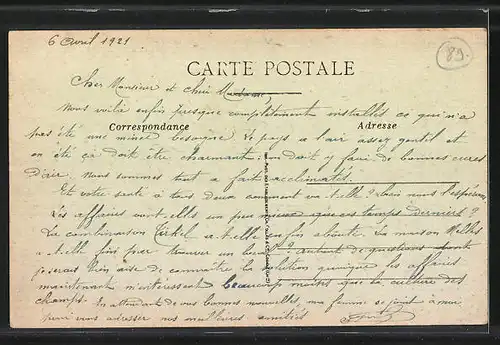 6 Avril 1921
89
CARTE POSTALE
Cher Monsieur et chère Madame,
Nous voilà enfin presque complètement installés ce qui n'a
pas été une mince besogne. Le pays a l'air assez gentil et
Correspondance
Adresse
en été ça doit être charmant: on doit y faire de bonnes cures
d'air. Nous sommes tout à fait acclimatés.
Et votre santé à tous deux comment va-t-elle? bien nous l'espérons.
Les affaires vont elles un peu mieux que ces temps derniers?
La combinaison a-t-elle enfin aboutie. La maison
a-t-elle fini par trouver un local? autant de questions dont
je serais bien aise de connaître la solution quoique les affaires
maintenant m'intéressent beaucoup moins que la culture des
champs. En attendant de vos bonnes nouvelles, ma femme se joint à moi
pour vous adresser nos meilleures amitiés